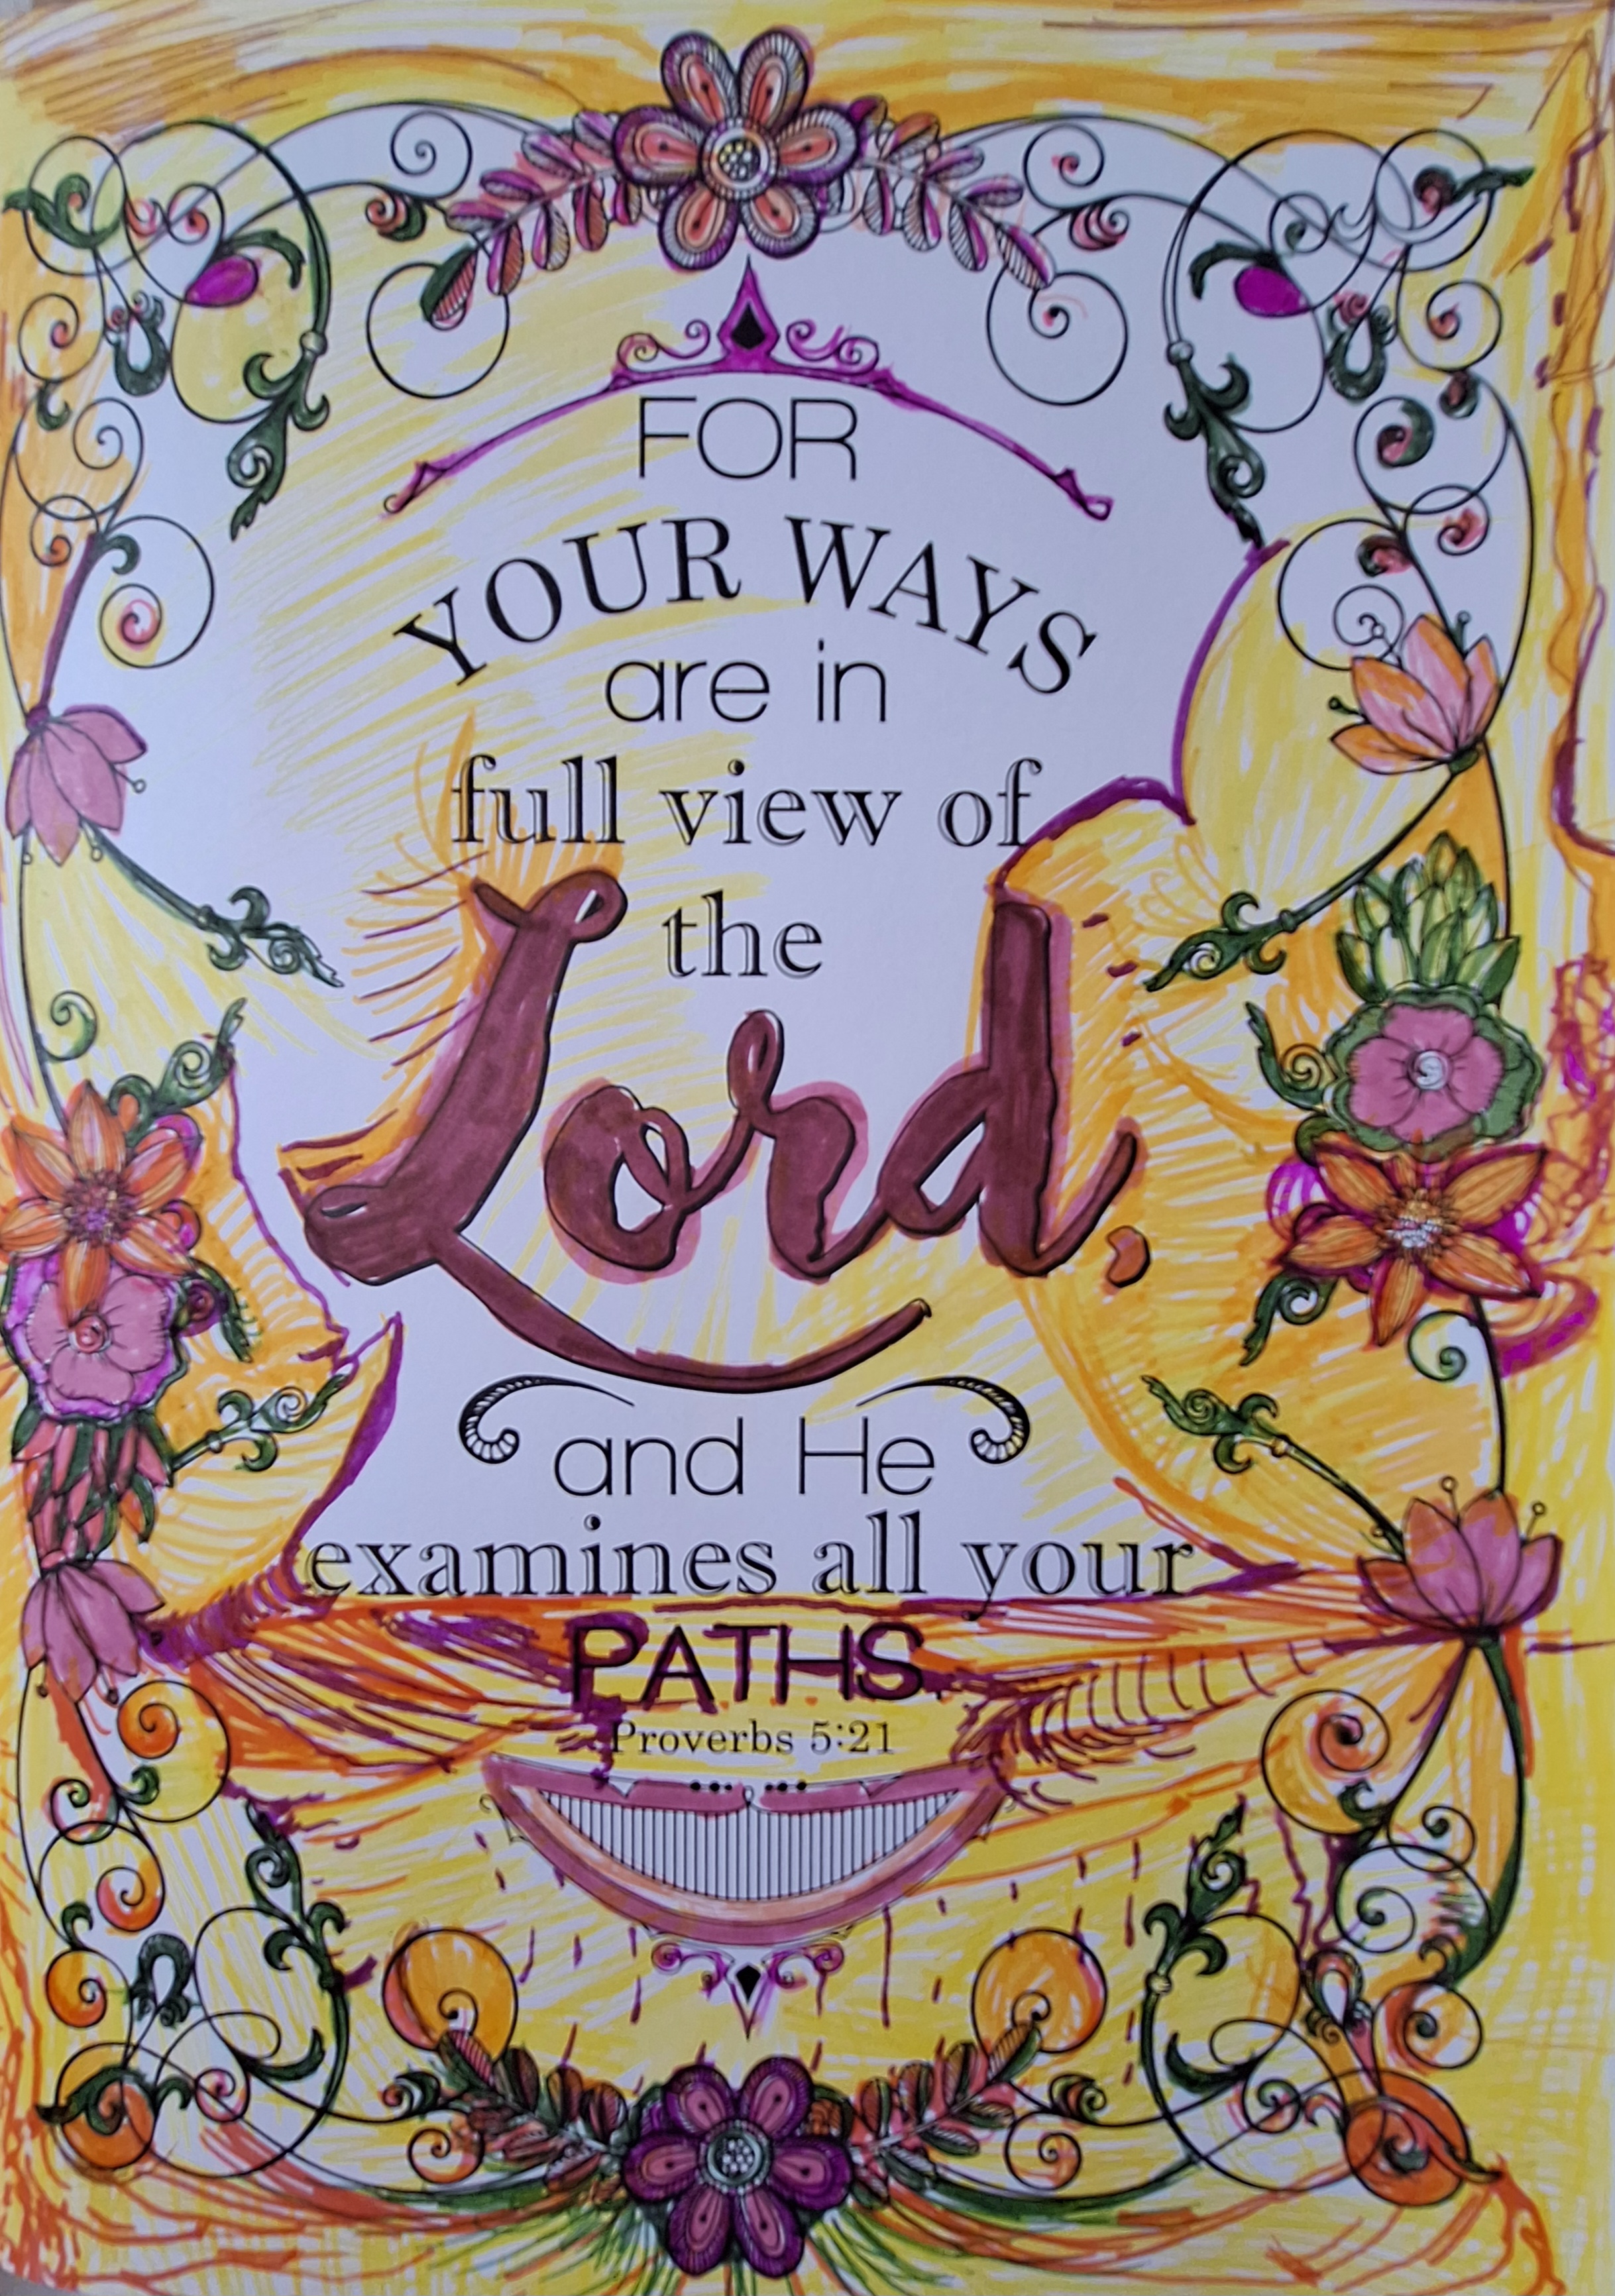 FOR
YOUR WAYS
are in
full view of
the
Lord,
and He
examines all your
PATHS
Proverbs 5:21